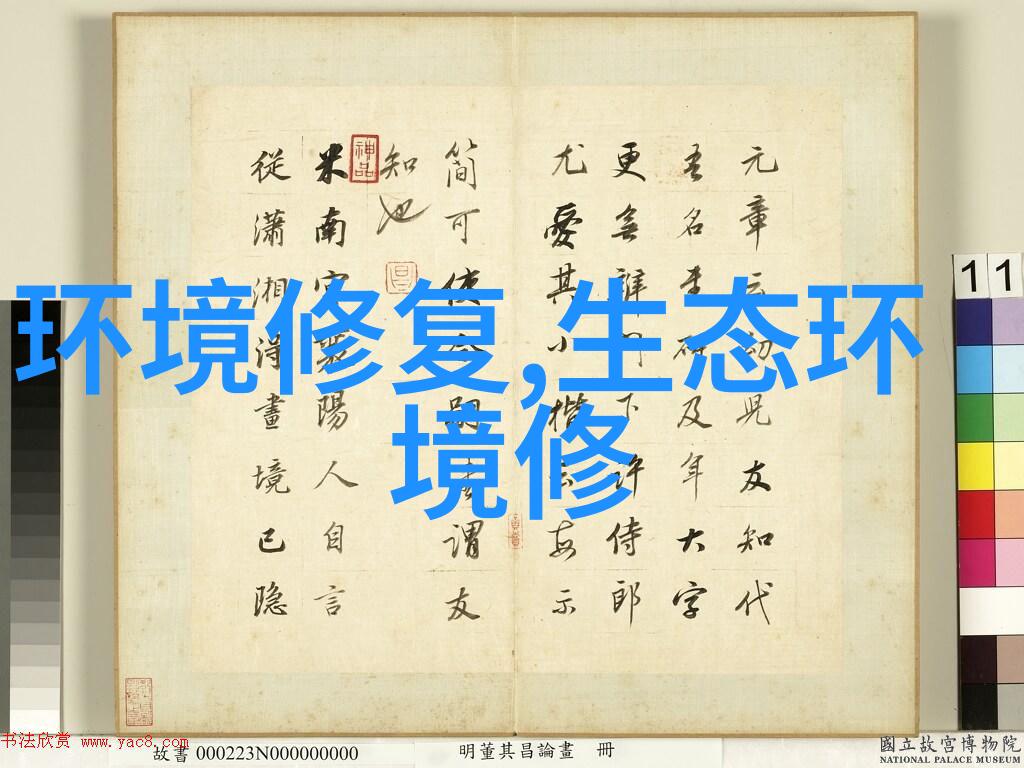 环境修复,生态环
境修
元章云幼見友知代
吾名書碑及年大字
更無誰門下許侍郎
尤愛其小楷云每示
簡可使令嗣書謂友
知也
神品
米南宮襄陽人自言
從瀟湘得畫境已隐
11
书法欣赏 www.yac8.com
故書 000223N000000000
明董其昌論畫 冊
國立故宮博物院
NATIONAL PALACE MUSEUM